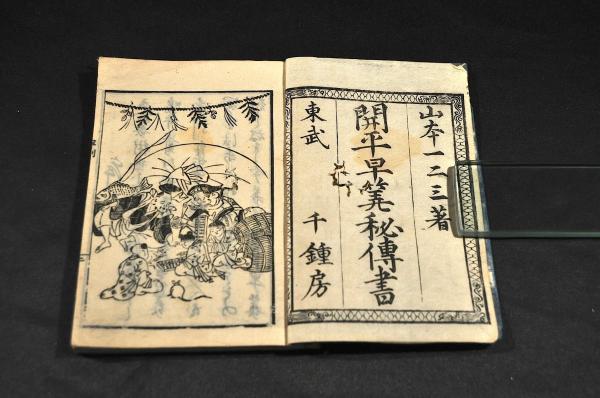 山本一二三著
開平早算秘傳書
東武
千鍾房